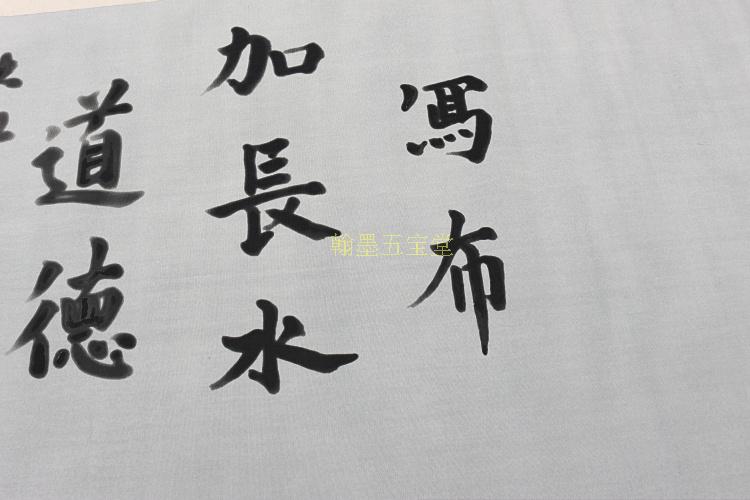 冩布
加長水
道德
翰墨五宝堂